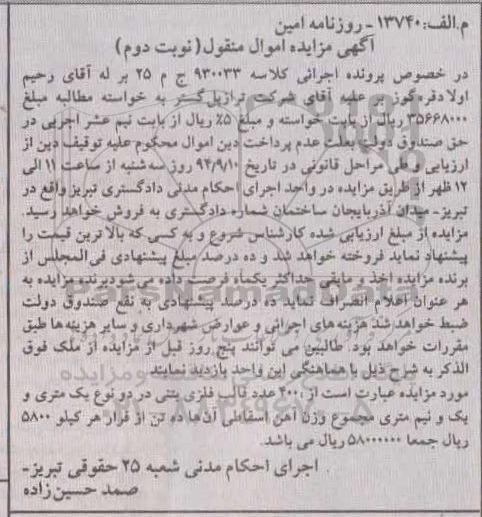 م.الف: ۱۳۷۴۰ - روزنامه امین
آگهی مزایده اموال منقول (نوبت دوم)
در خصوص پرونده اجرائی کلاسه ۹۳۰۰۳۳ ج م ۲۵ بر له آقای رحیم
اولادقره‌گوز و علیه آقای شرکت ترازیل‌گستر به خواسته مطالبه مبلغ
۳۵۶۶۸۰۰۰ ریال از بابت خواسته و مبلغ ۵٪ ریال از بابت نیم عشر اجرایی در
حق صندوق دولت بعلت عدم پرداخت دین اموال محکوم علیه توقیف دین از
ارزیابی و طی مراحل قانونی در تاریخ ۹۴/۹/۱۰ روز سه‌شنبه از ساعت ۱۱ الی
۱۲ ظهر از طریق مزایده در واحد اجرای احکام مدنی دادگستری تبریز واقع در
تبریز - میدان آذربایجان ساختمان شماره دادگستری به فروش خواهد رسید.
مزایده از مبلغ ارزیابی شده کارشناس شروع و به کسی که بالاترین قیمت را
پیشنهاد نماید فروخته خواهد شد و ده درصد مبلغ پیشنهادی فی‌المجلس از
برنده مزایده اخذ و مابقی حداکثر یکماه فرصت داده می‌شود برنده مزایده به
هر عنوان اعلام انصراف نماید ده درصد پیشنهادی به نفع صندوق دولت
ضبط خواهد شد هزینه‌های اجرائی و عوارض شهرداری و سایر هزینه‌ها طبق
مقررات خواهد بود. طالبین می توانند پنج روز قبل از مزایده از ملک فوق
الذکر به شرح ذیل با هماهنگی این واحد بازدید نمایند
مورد مزایده عبارت است از ۴۰۰ عدد قالب فلزی بتنی در دو نوع یک متری و
یک و نیم متری مجموع وزن آهن اسقاطی آن‌ها ده تن از قرار هر کیلو ۵۸۰۰
ریال جمعا ۵۸۰۰۰۰۰۰ ریال می باشد.
اجرای احکام مدنی شعبه ۲۵ حقوقی تبریز-
صمد حسین‌زاده
ParsNamadData